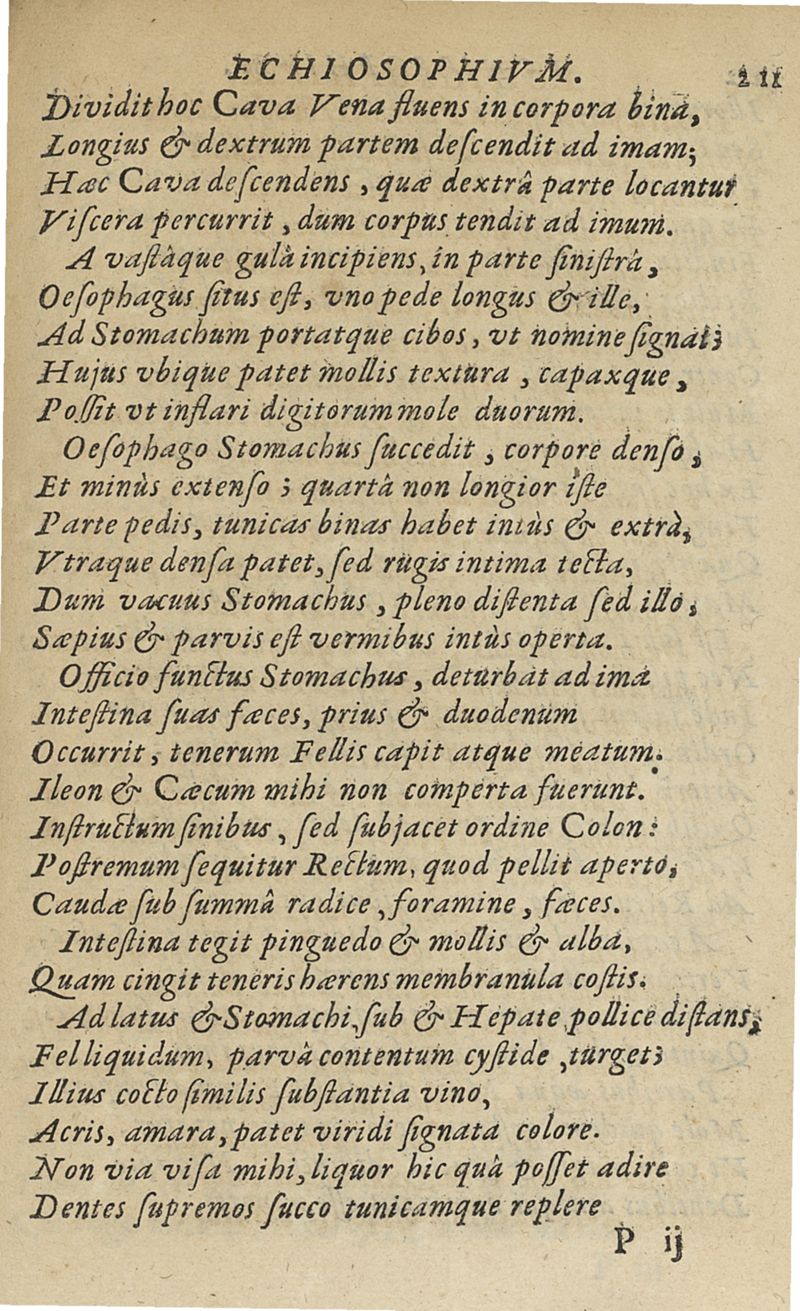 ECHIOSOPHIVM. 211
Dividit hoc Cava Vena fluens in corpora bina,
Longius & dextrum partem deſcendit ad imam;
Hæc Cava deſcendens, quæ dextrâ parte locantur
Viſcera percurrit, dum corpus tendit ad imum.
A vaſtâque gulâ incipiens, in parte ſiniſtrâ,
Oeſophagus ſitus eſt, vno pede longus & ille,
Ad Stomachum portatque cibos, vt nomine ſignat;
Hujus vbique patet mollis textura, capaxque,
Poſſit vt inflari digitorum mole duorum.
Oeſophago Stomachus ſuccedit, corpore denſo,
Et minùs extenſo; quartâ non longior iſte
Parte pedis, tunicas binas habet intùs & extrà,
Vtraque denſa patet, ſed rugis intima tecta,
Dum vacuus Stomachus, pleno diſtenta ſed illo;
Sæpius & parvis eſt vermibus intùs operta.
Officio functus Stomachus, deturbat ad ima
Inteſtina ſuas fæces, prius & duodenum
Occurrit, tenerum Fellis capit atque meatum.
Ileon & Cæcum mihi non comperta fuerunt.
Inſtructum ſinibus, ſed ſubjacet ordine Colon:
Poſtremum ſequitur Rectum, quod pellit aperto,
Caudæ ſub ſummâ radice, foramine, fæces.
Inteſtina tegit pinguedo & mollis & alba,
Quam cingit teneris hærens membranula coſtis.
Ad latus & Stomachi, ſub & Hepate pollice diſtans,
Fel liquidum, parvâ contentum cyſtide, turget;
Illius cocto ſimilis ſubſtantia vino,
Acris, amara, patet viridi ſignata colore.
Non via viſa mihi, liquor hic quâ poſſet adire
Dentes ſupremos ſucco tunicamque replere
P ij